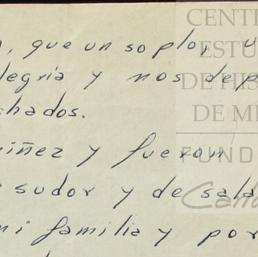 , que un soplo, u
legría y nos de
chados.
iñez y fueron
sudor y de sala
mi familia y por
CENT
ESTU
DE HIS
DE M
FUND